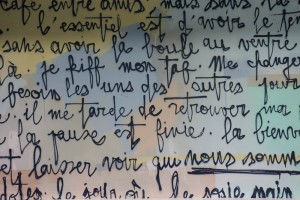 café entre amis, mais sans la
l'essentiel est d'voir le
sans avoir la boule au ventre
je kiff mon taf. Me changer
besoin les uns des autres
il me tarde de retrouver ma
la pause est finie. la bienv
et laisser voir qui nous somm